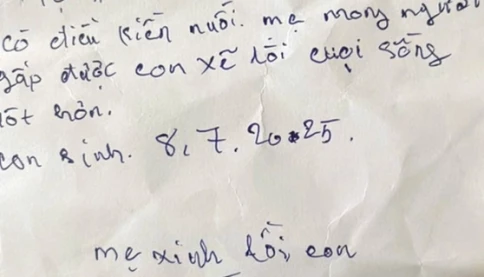 có điều kiễn nuôi. mẹ mong người
gấp được con xẽ lối cuọi sống
tốt hơn.
con sinh. 8. 7. 2025.
mẹ xinh lỗi con